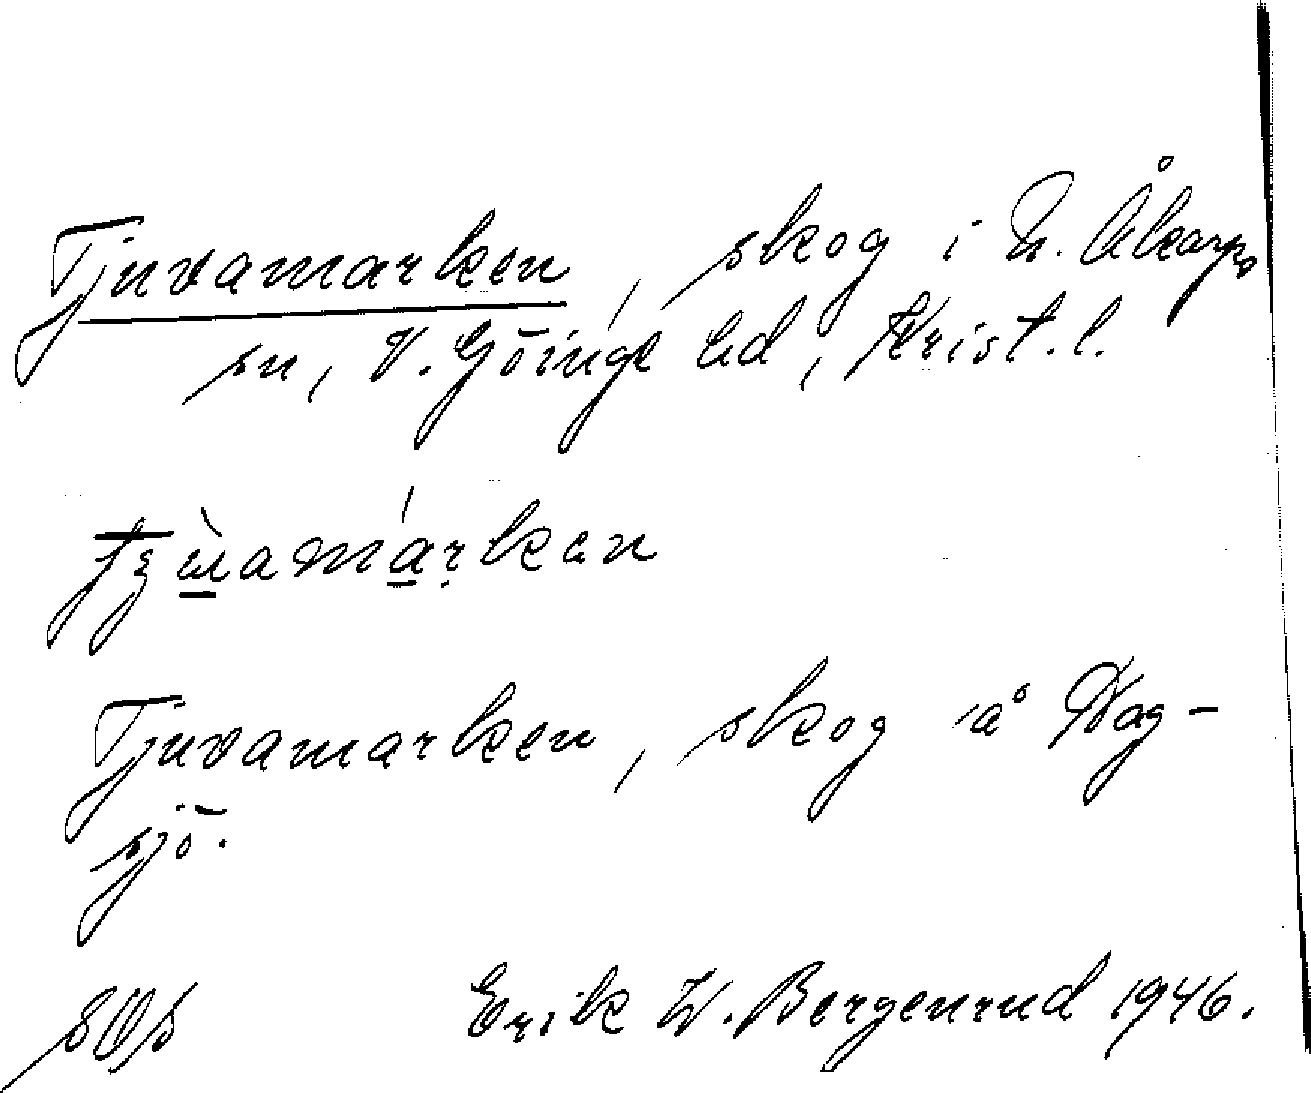 Tjuvamarken, skog i N. Åkarps
sn, V. Göinge hd, Krist. l.
Tjuvamarken, skog å Vag-
sjö.
SOS Erik W. Bergenrud 1946.